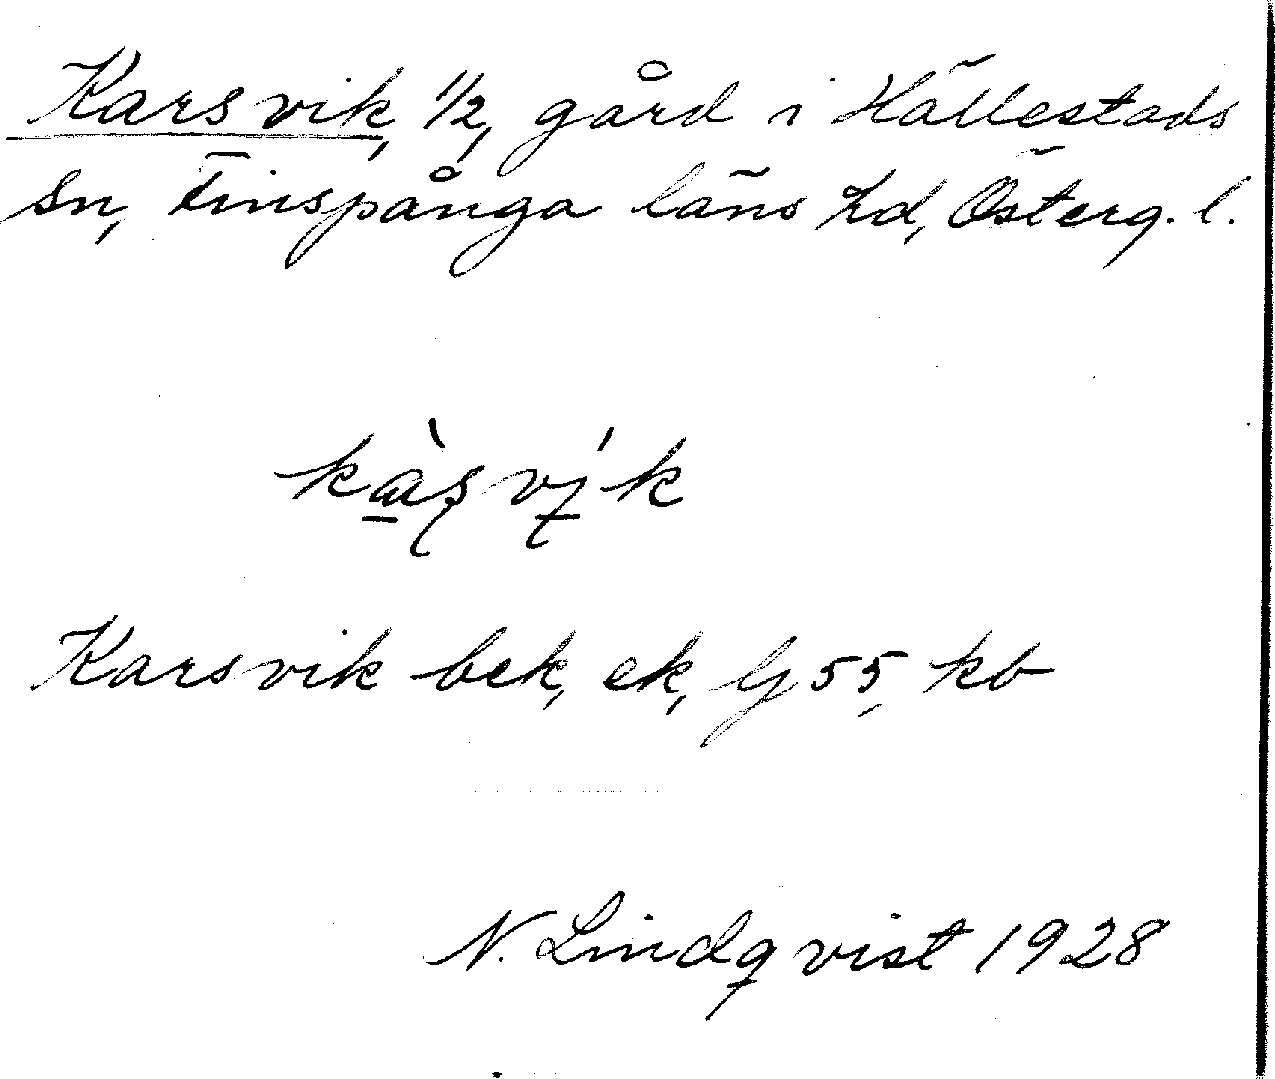 Karsvik, 1/2, gård i Hällestads
Sn, Finspånga läns hd, Österg. l.
kàs̨vį́k
Karsvik bek, ek, G 55, kb
N. Lindqvist 1928